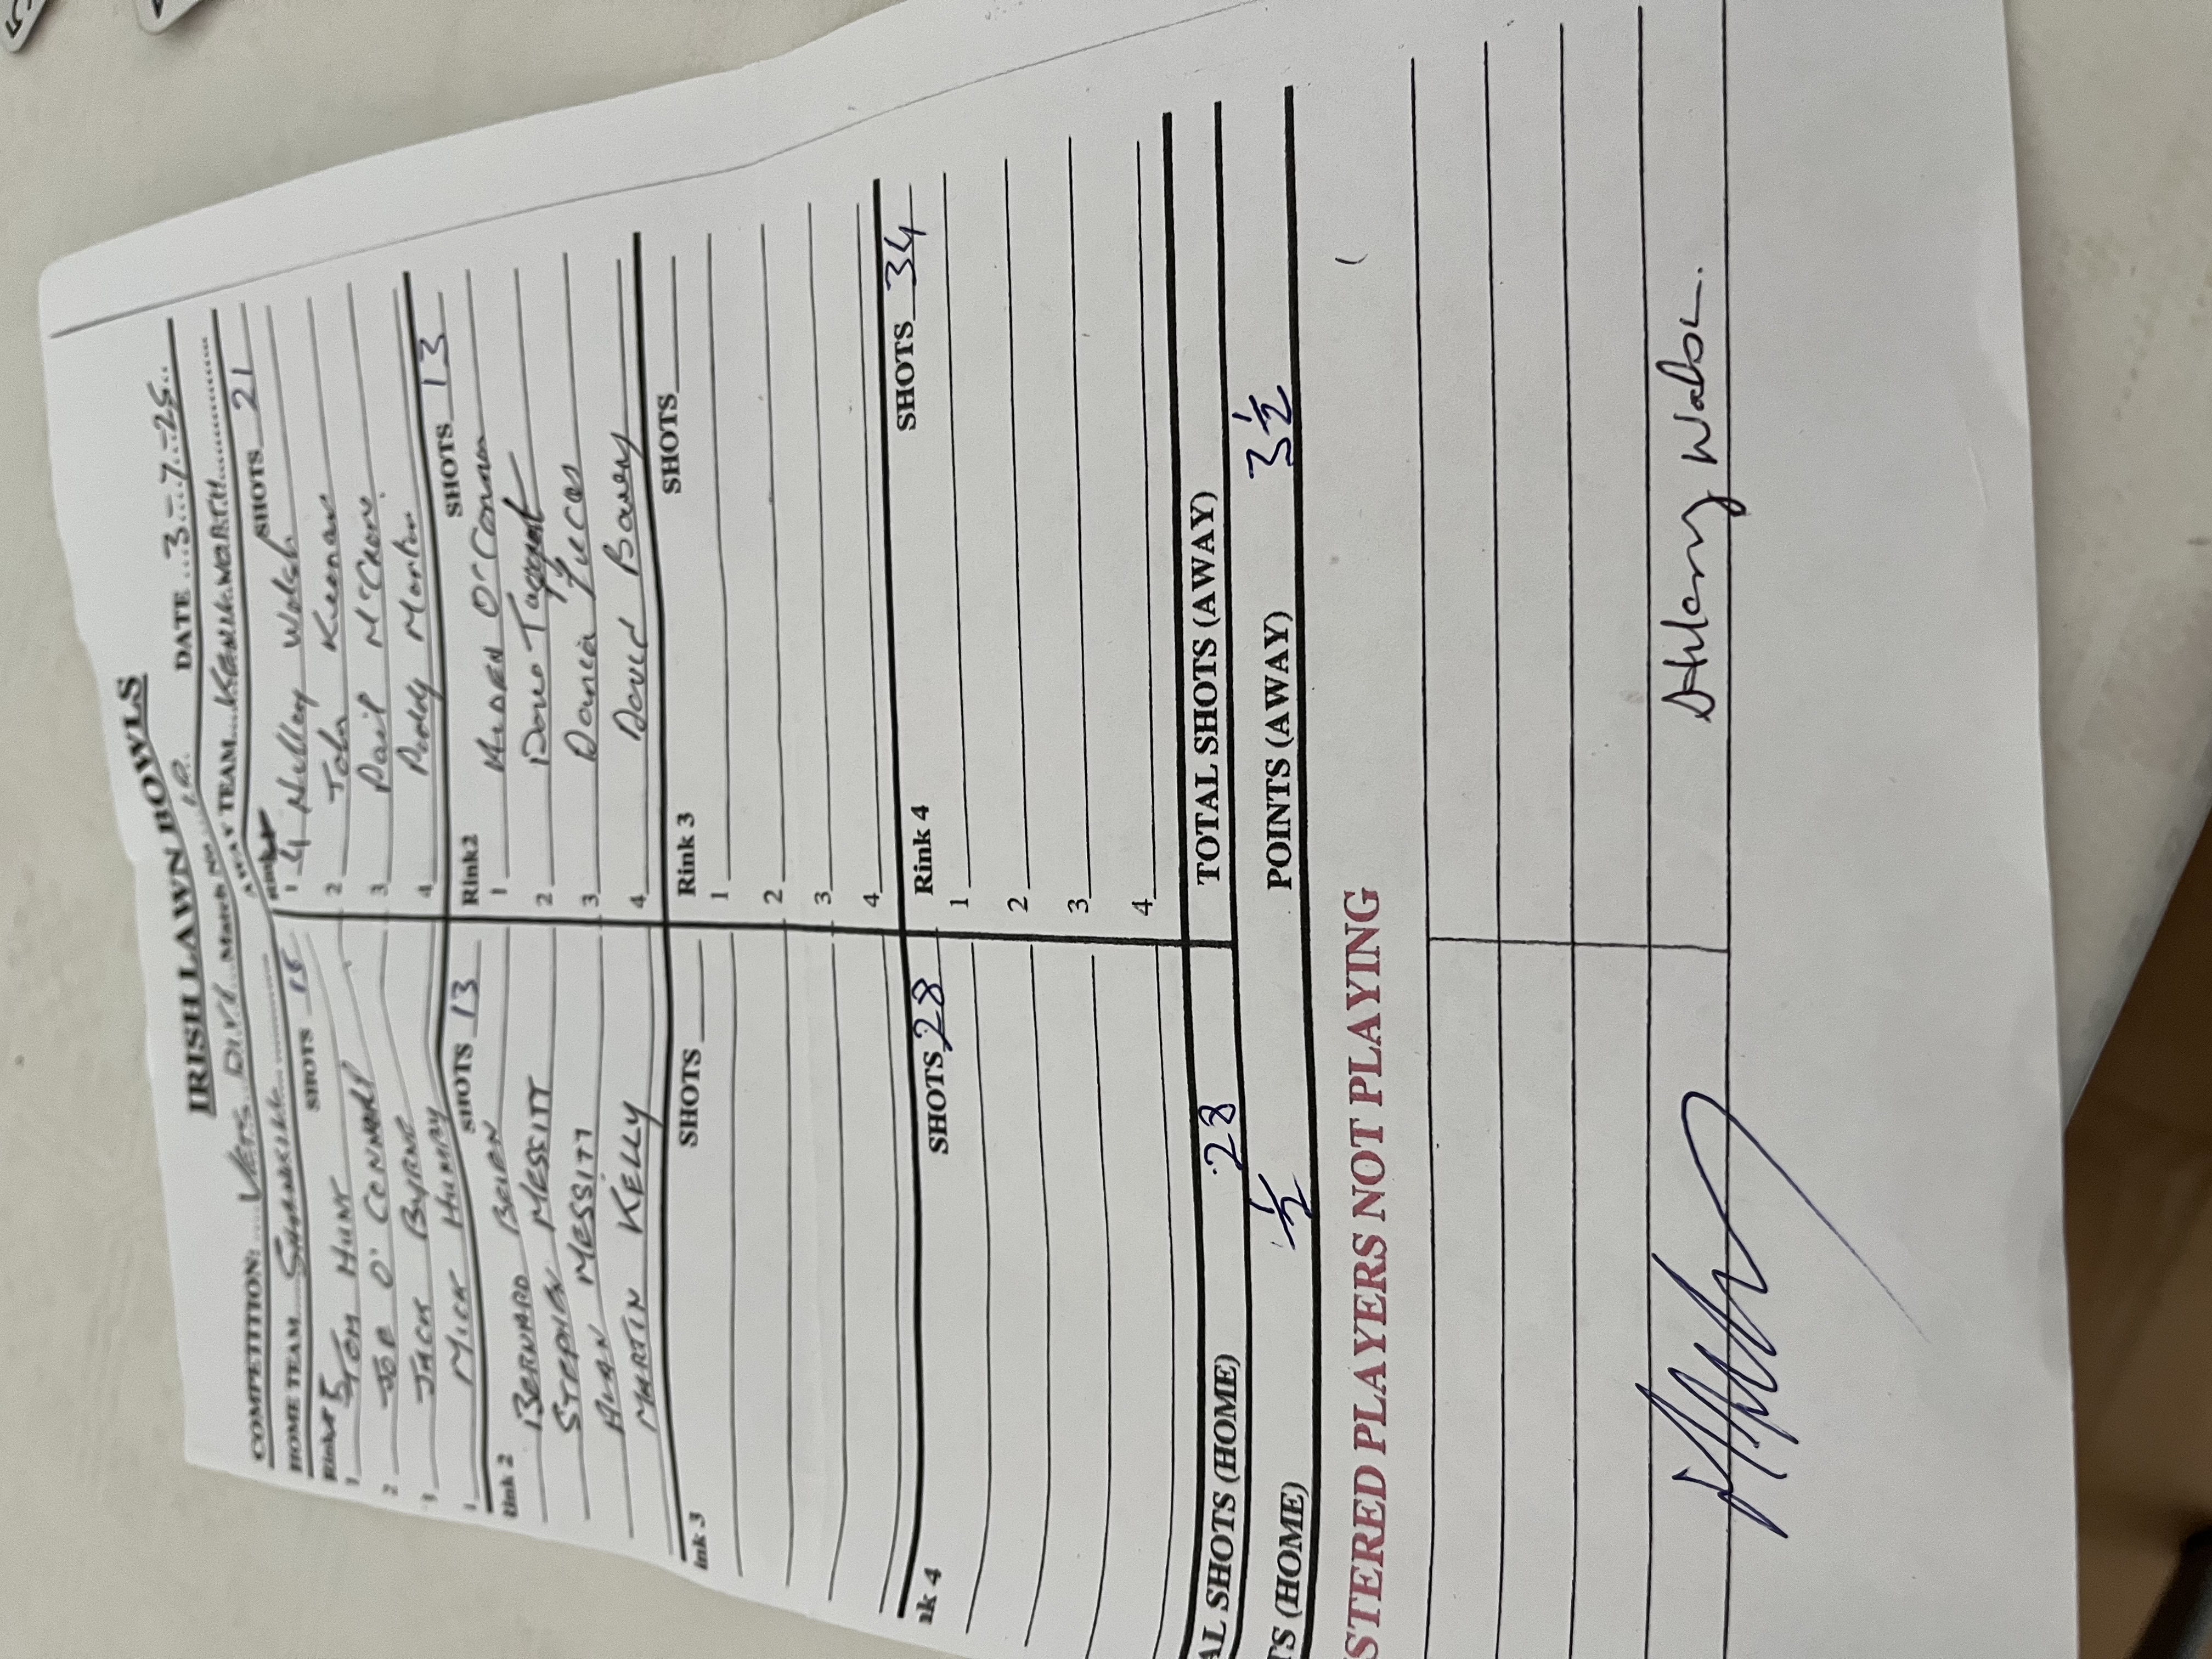 IRISH LAWN BOWLS
COMPETITION: Vets Div 1 Match No. 10. DATE 3-7-25
HOME TEAM Shankill AWAY TEAM Kenilworth
SHOTS 15 SHOTS 21
Rink 5 Rink 4
1 Tom Hunt 1 Walsh
2 Joe O'Connor 2 John Keenan
3 Jack Byrne 3 Paul
Mick Humby 4 Paddy Martin
SHOTS 13 SHOTS 13
ink 2 Rink2
BERNARD BRIEN 1 O'Connor
STEPHEN MESSITT 2 Taggart
ALAN MESSITT 3
MARTIN KELLY 4 David Bavey
SHOTS SHOTS
ink 3 Rink 3
1
2
3
4
SHOTS 28 SHOTS 34
nk 4 Rink 4
1
2
3
4
AL SHOTS (HOME) 28 TOTAL SHOTS (AWAY)
TS (HOME) ½ POINTS (AWAY) 3½
STERED PLAYERS NOT PLAYING